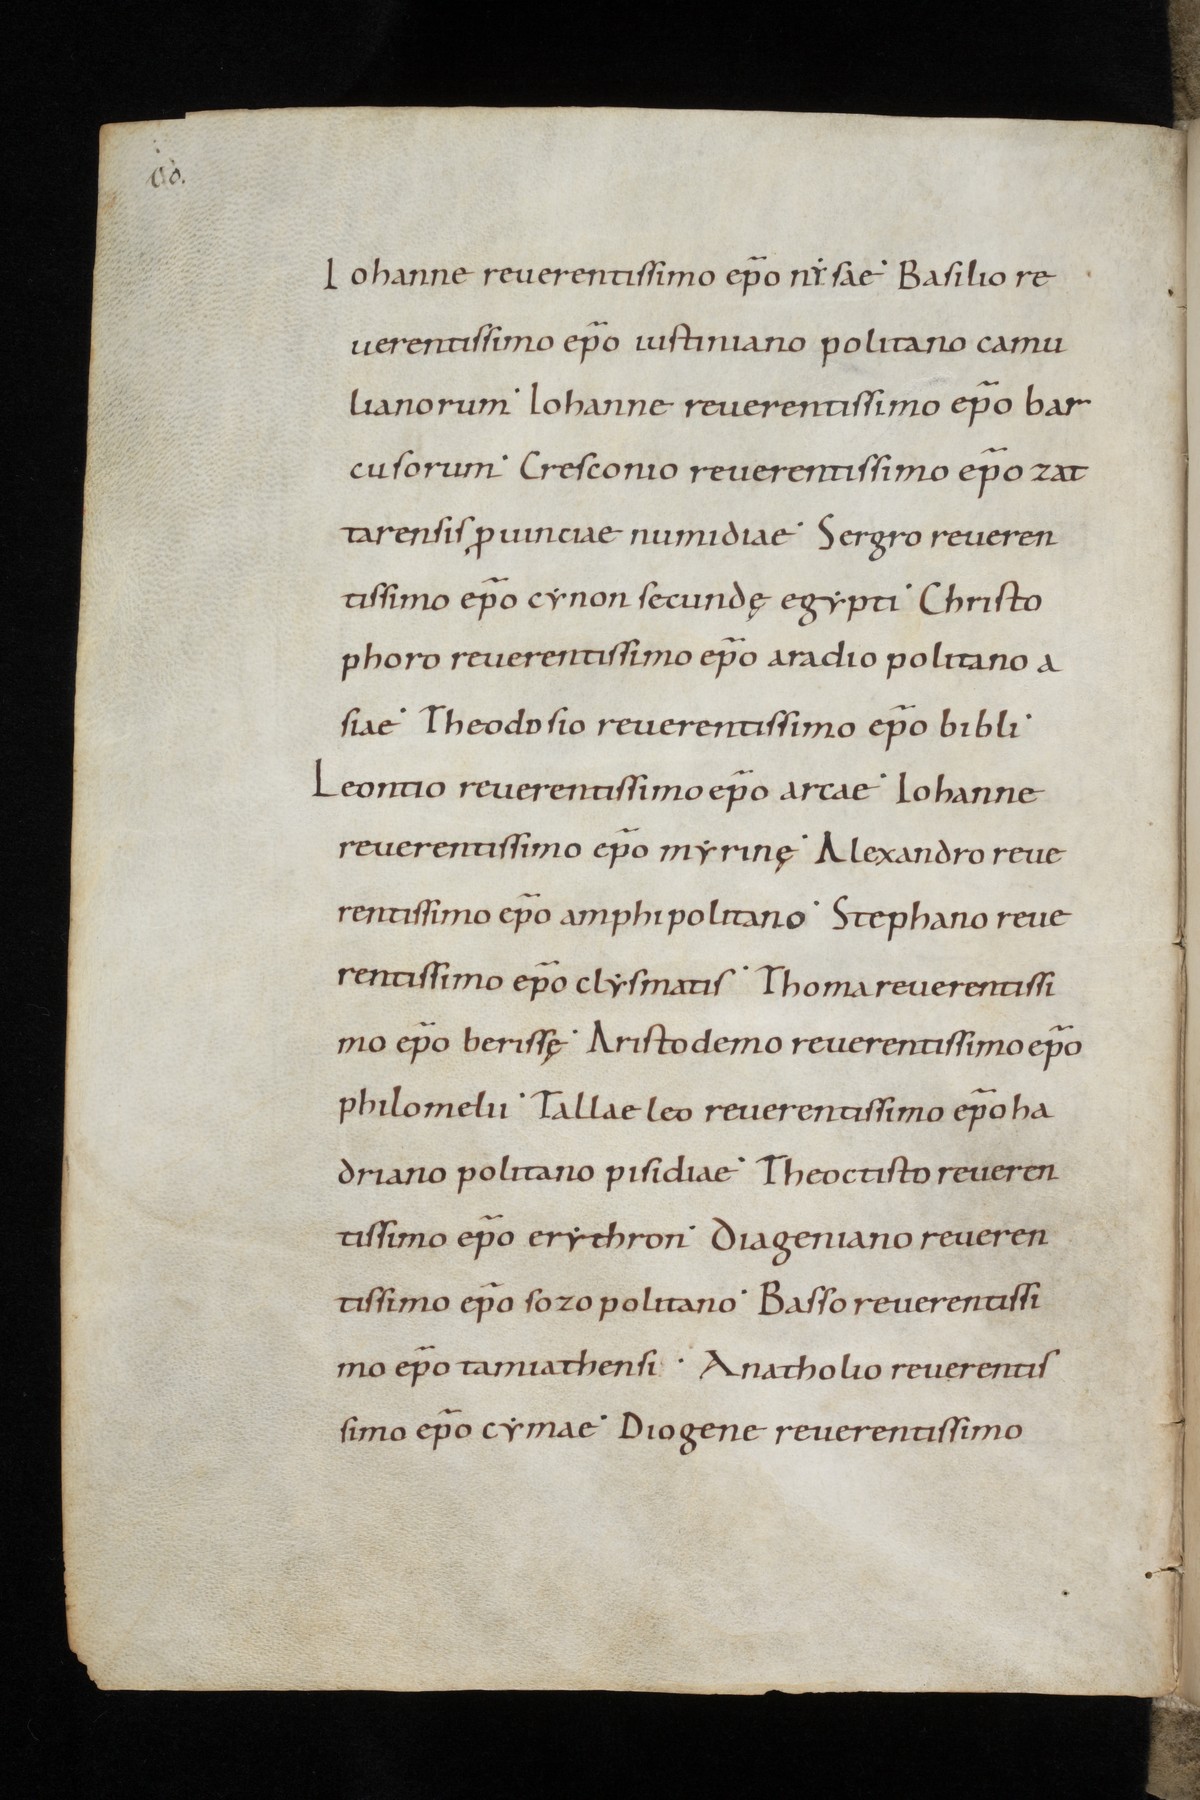 Iohanne reuerentissimo ep̃o nẏsae· Basilio re
uerentissimo ep̃o iustiniano politano camu
lianorum· Iohanne reuerentissimo ep̃o bar
cusorum· Cresconio reuerentissimo ep̃o zat
tarensis ꝓuinciae numidiae· Sergro reueren
tissimo ep̃o cẏnon secundę egẏpti· Christo
phoro reuerentissimo ep̃o aradio politano a
siae· Theodosio reuerentissimo ep̃o bibli·
Leontio reuerentissimo ep̃o arcae· Iohanne
reuerentissimo ep̃o mẏrinę· Alexandro reue
rentissimo ep̃o amphipolitano· Stephano reue
rentissimo ep̃o clẏsmatis· Thoma reuerentissi
mo ep̃o berissę· Aristodemo reuerentissimo ep̃o
philomelii· Tallaeleo reuerentissimo ep̃o ha
driano politano pisidiae· Theoctisto reueren
tissimo ep̃o erẏthron· Diageniano reueren
tissimo ep̃o sozopolitano· Basso reuerentissi
mo ep̃o tamiathensi· Anatholio reuerentis
simo ep̃o cẏmae· Diogene reuerentissimo